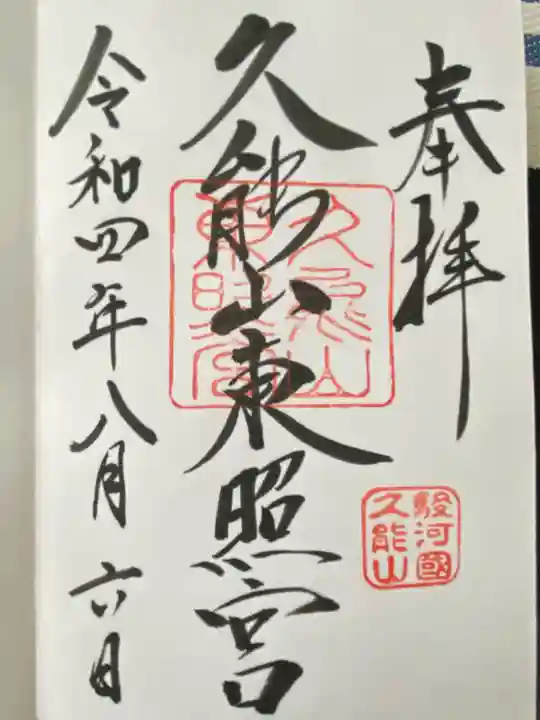 奉拝
駿河國
久能山
久能山東照宮
久能山
東照宮
令和四年八月六日